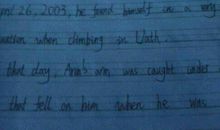 pril 26, 2003, he found himself in a very
uation when climbing in Utah.
that day, Aron's arm was caught under
that fell on him when he was